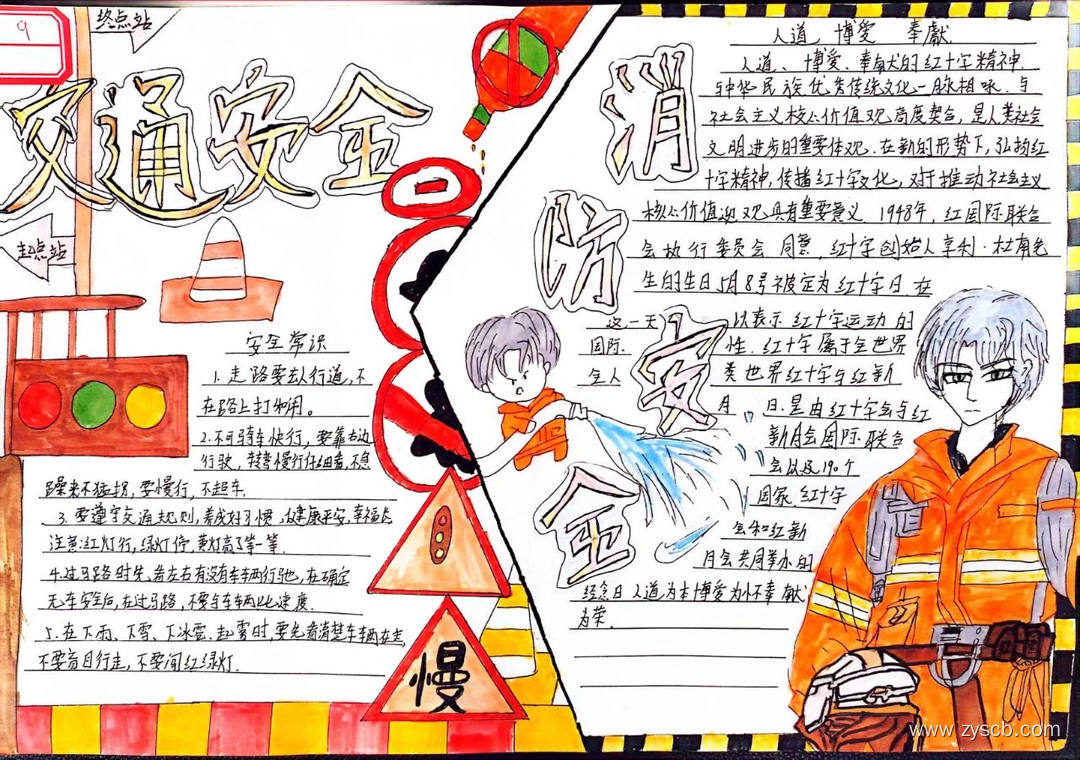 9
终点站
交通安全
起点站
安全常识
1.走路要去人行道,不
在路上打和闹。
2.不可骑车快行,要靠右边
行驶,
要慢行,不超车.
3.要遵守交通规则,养成好习惯,健康平安,幸福点
注意:红灯行,绿灯停,黄灯亮了等一等.
4.过马路时先看左右有没有车辆行驶,在确定
无车安全后,在过马路,不要与车辆比速度.
5.在下雨、下雪、下冰雹、起雾时,要先看清楚车辆在走,
不要盲目行走,不要闯红绿灯.
慢
消
防
安
全
人道 博爱 奉獻
人道、博爱、奉献的红十字精神.
与中华民族优秀传统文化一脉相承.与
社会主义核心价值观高度契合,是人类社会
文明进步的重要体观.在新的形势下,弘扬红
十字精神,传播红十字文化,对于推动社会主义
核心价值观具有重要意义.1948年,红国际联合
会执行委员会同意,红十字创始人亨利·杜南先
生的生日5月8号被定为红十字日.在
这一天 以表示红十字运动的
国际 性.红十字属于全世界
全人 类世界红十字与红新
月 日.是由红十字会与红
新月会国际联合
会以及190个
国家.红十字
会和红新
月会共同举办的
纪念日人道为本博爱为怀奉献
为荣.
www.zyscb.com